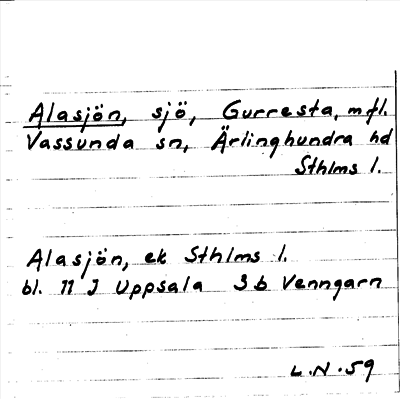 Alasjön, sjö, Gurresta, m fl.
Vassunda sn, Ärlinghundra hd
Sthlms l.
Alasjön, ek Sthlms l.
bl. 11 J Uppsala 3 b Venngarn
L.N. 59